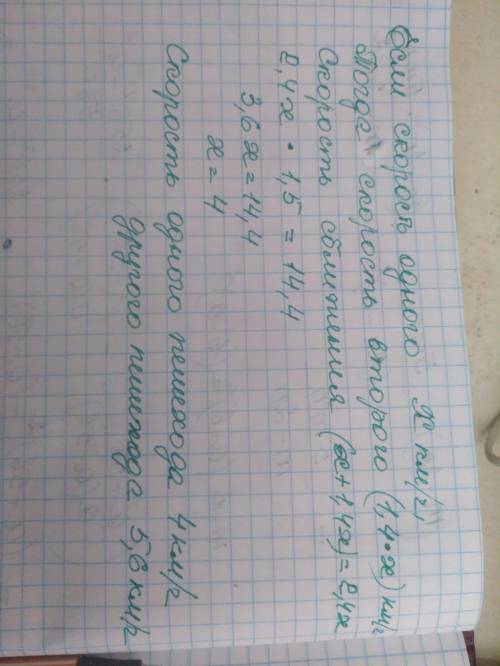 Если скорость одного х км/ч
Тогда скорость второго (1,4•х) км/ч
Скорость сближения (х+1,4х)=2,4х
2,4х • 1,5 = 14,4
3,6х=14,4
х=4
Скорость одного пешехода 4 км/ч
другого пешехода 5,6 км/ч